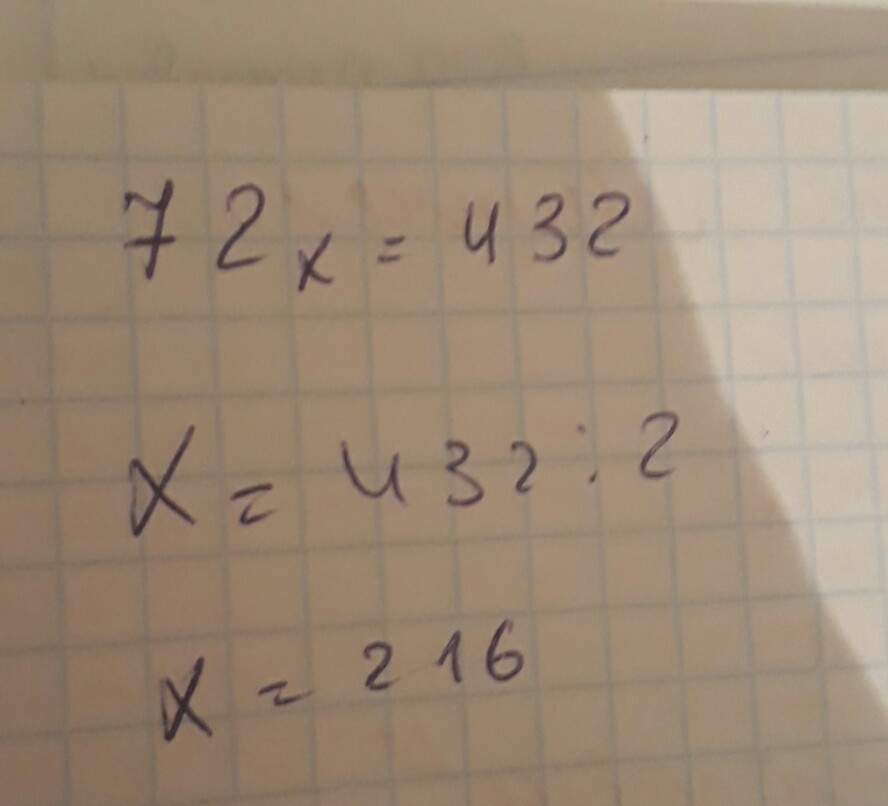 72x = 432
x = 432 : 2
x = 216